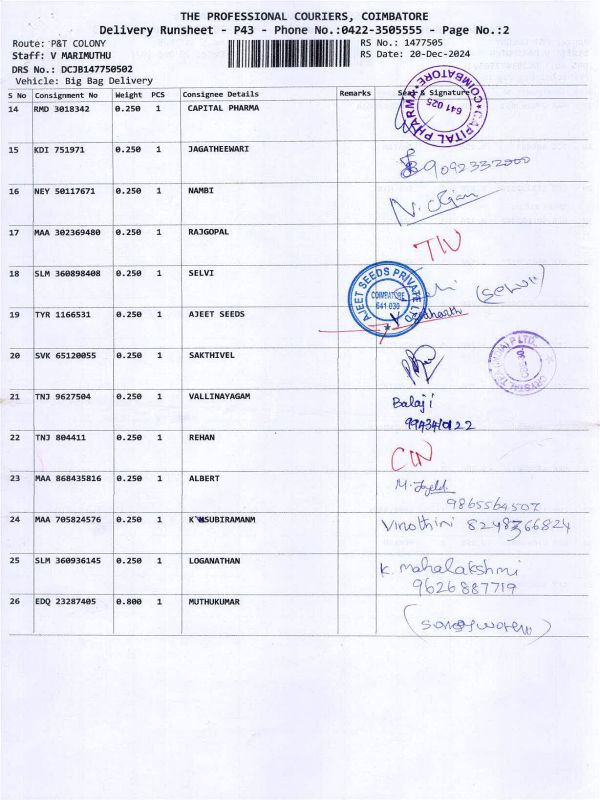 THE PROFESSIONAL COURIERS, COIMBATORE
Delivery Runsheet - P43 - Phone No.:0422-3505555 - Page No.:2
Route: P&T COLONY RS No.: 1477505
Staff: V MARIMUTHU RS Date: 20-Dec-2024
DRS No.: DCJB147750502
Vehicle: Big Bag Delivery
S No Consignment No Weight PCS Consignee Details Remarks Seal & Signature
14 RMD 3018342 0.250 1 CAPITAL PHARMA
CAPITAL PHARMA COIMBATORE 641 025
15 KDI 751971 0.250 1 JAGATHEEWARI
16 NEY 50117671 0.250 1 NAMBI
17 MAA 302369480 0.250 1 RAJGOPAL
18 SLM 360898408 0.250 1 SELVI (Selvi)
AJEET SEEDS PRIVATE LTD COIMBATORE 641 030
19 TYR 1166531 0.250 1 AJEET SEEDS
20 SVK 65120055 0.250 1 SAKTHIVEL
21 TNJ 9627504 0.250 1 VALLINAYAGAM Balaji
22 TNJ 804411 0.250 1 REHAN
23 MAA 868435816 0.250 1 ALBERT
9865564507
24 MAA 705824576 0.250 1 Vinothini 8248366824
25 SLM 360936145 0.250 1 LOGANATHAN K. mahalakshmi
9626887719
26 EDQ 23287405 0.800 1 MUTHUKUMAR